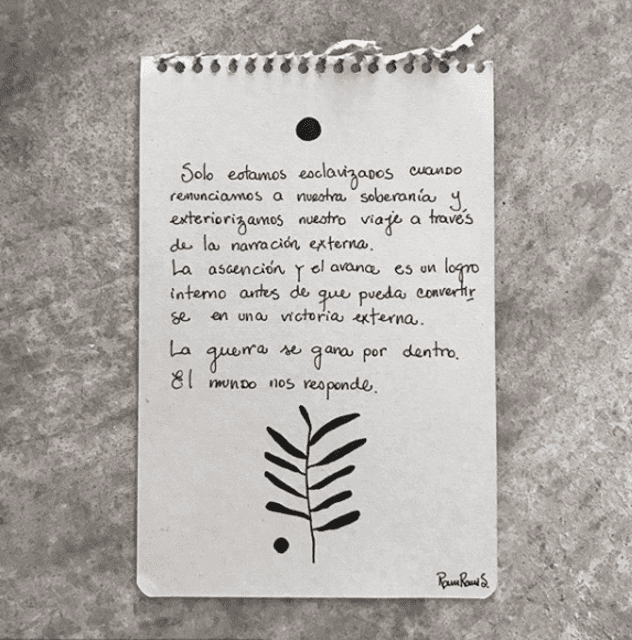 Solo estamos esclavizados cuando
renunciamos a nuestra soberanía y
exteriorizamos nuestro viaje a través
de la narración externa.
La ascención y el avance es un logro
interno antes de que pueda convertir
se en una victoria externa.
La guerra se gana por dentro.
El mundo nos responde.